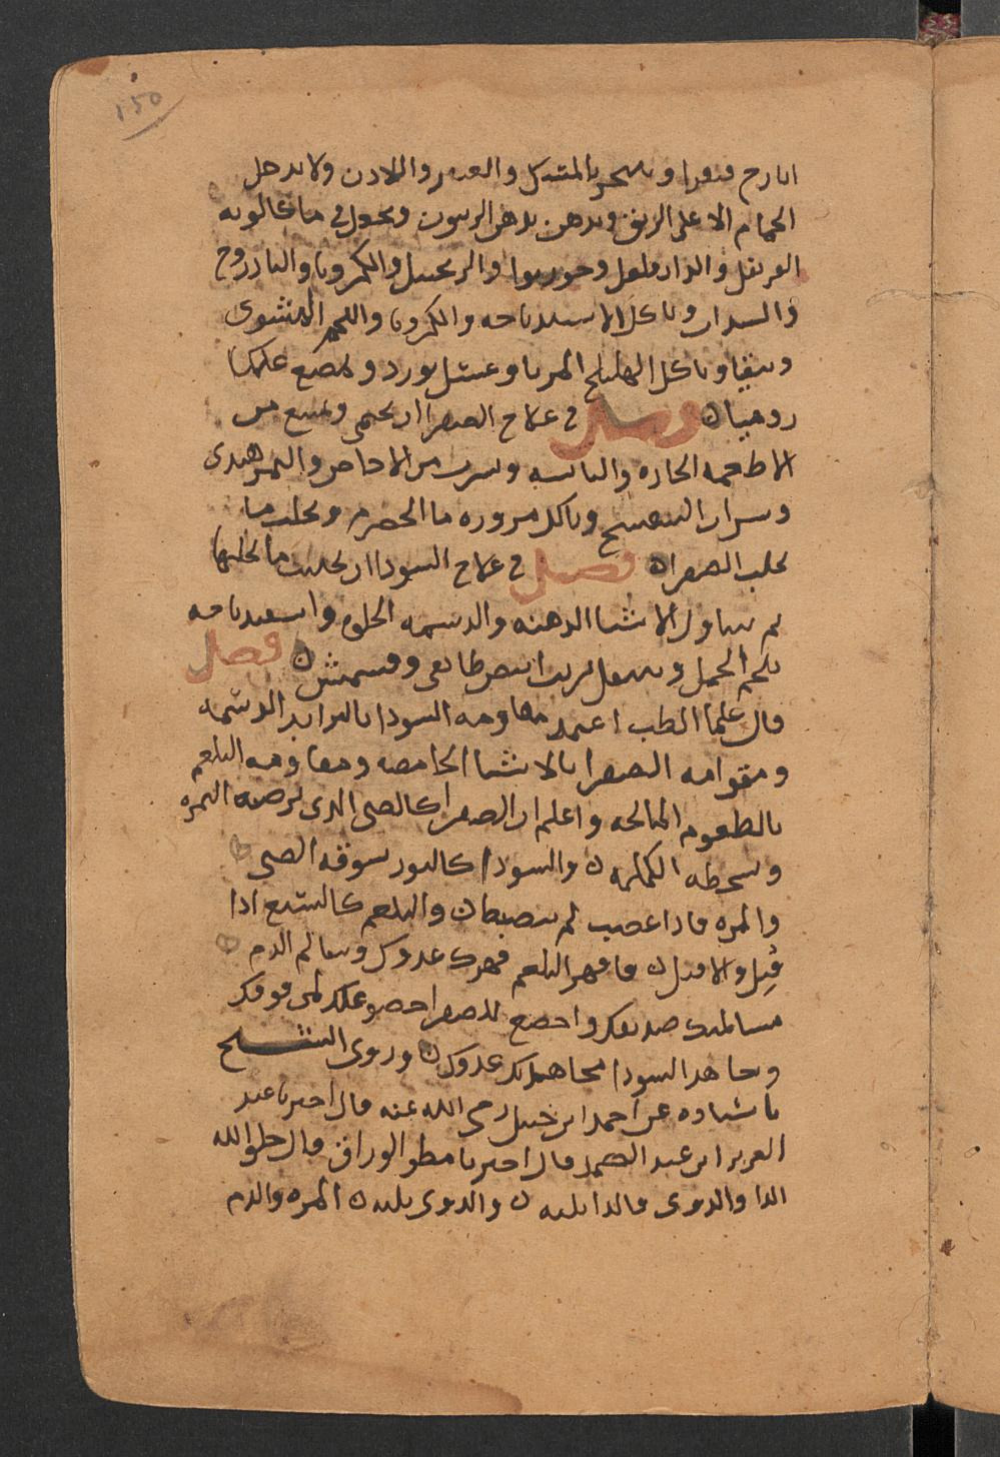 ١٥٠
ايارج فيقرا ويتبخر بالمسك والعنبر واللادن ولا يدخل
الحمام الا على الريق ويدهن بدهن الزيتون ويجعل في ماكالوته
القرنفل والدار فلفل وجوزبوا والزنجبيل والكمون والبادروج
والسداب وياكل الاسفيدباجه والكرويا واللحم المشوى
وينقا وياكل الهليلج المربا وعسل بورد ويمضغ علكا
روميا ن فصل في علاج الصفرا ان يحتمى ويمنع من
الاطعمه الحاره واليابسه ويشرب من الاجاص والتمرهندى
وشراب البنفسج وياكل مزوره ما الحصرم ويجلب ما
يجلب الصفرا ن فصل في علاج السودا ان يجلب ما يجلبها
ثم يتناول الاشيا الدهنه والدسمه الحلوه واسفيدباجه
بلحم الحمل و طايفى وقسمش ن فصل
قال علما الطب اعتمد مقاومه السودا بالثرايد الدسمه
ومقوامه الصفرا بالاشيا الحامضه ومقاومه البلغم
بالطعوم المالحه واعلم ان الصفرا كالصبى الذى ترضيه التمره
وتسخطه الكلمه ن والسودا كالثور سوقه الصبى
والمره فاذا غضب لم ينضبط ن والبلغم كالسبع اذا
قُتِل والا قتل ن فاقهر البلغم قهرك عدوك وسالم الدم
مسالمتك صديقك واخضع للصفرا خضوعك لمن فوقك
وجاهد السودا مجاهدتك عدوك ن وروى الشيخ
باسناده عن احمد ابن حنبل رضى الله عنه قال اخبرنا عبد
العزيز ابن عبد الصمد قال اخبرنا مطر الوراق قال خلق الله
الدا والدوى فالدا ثلثه ن والدوى ثلثه ن المره والدم